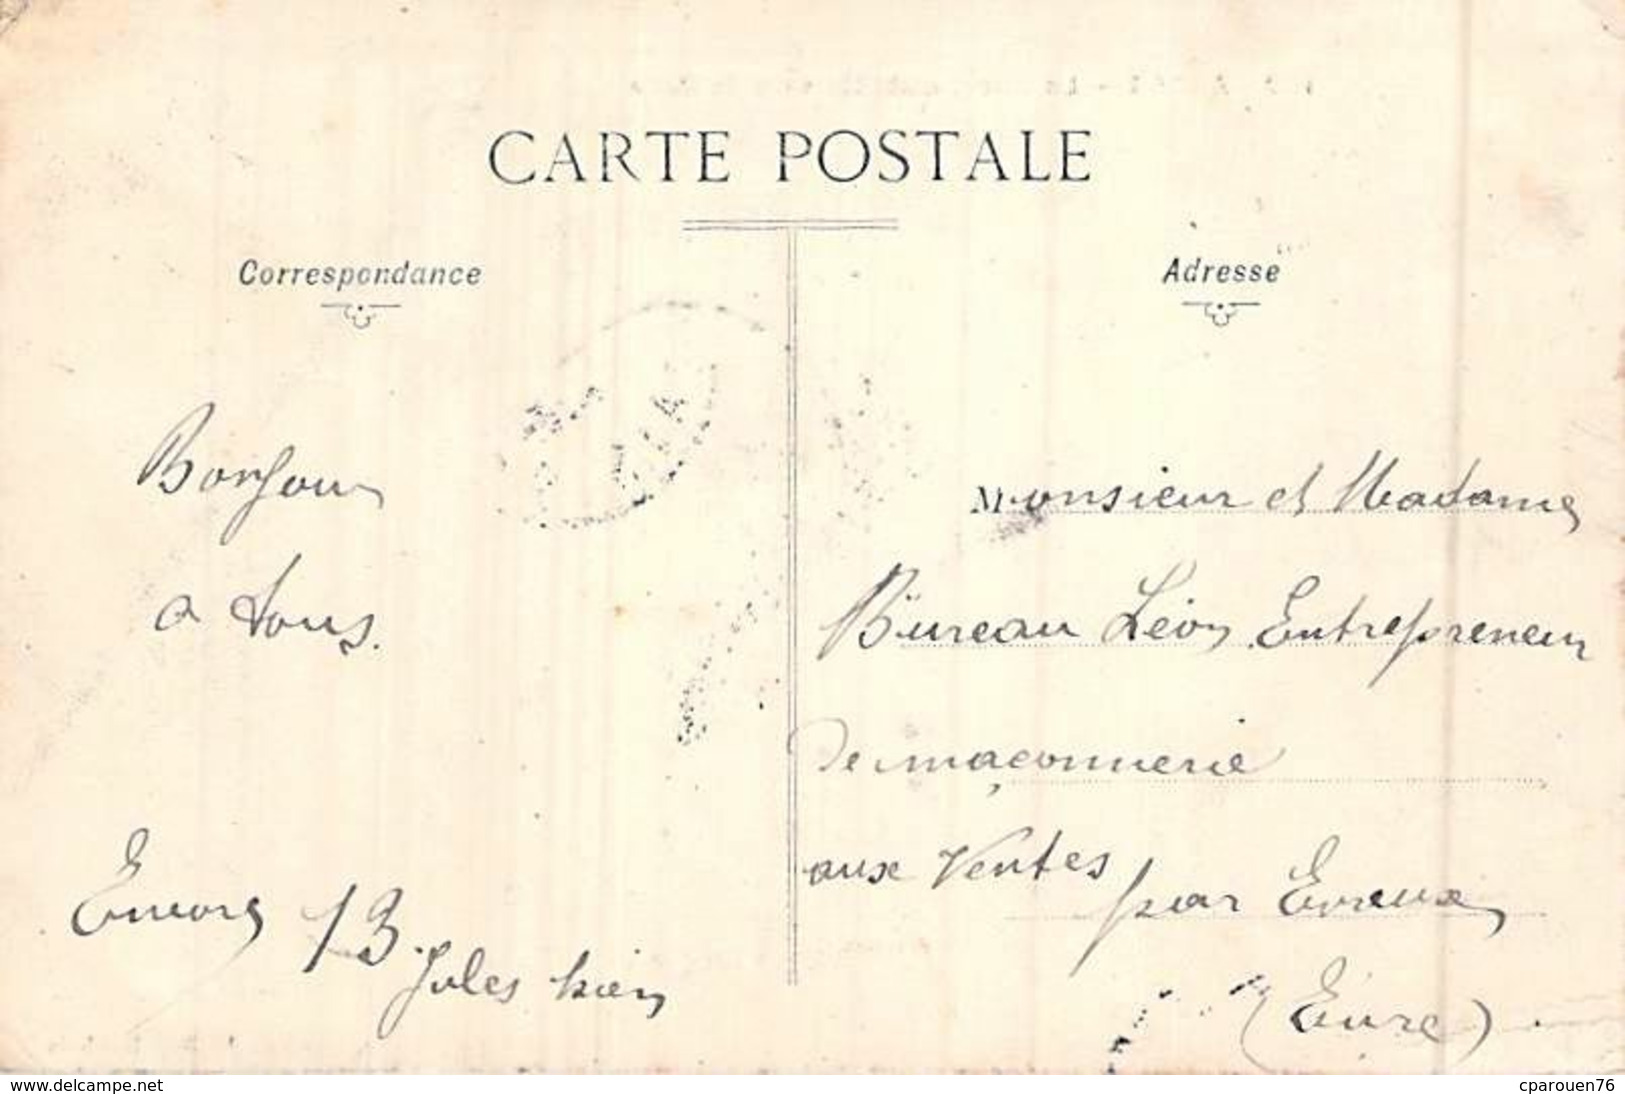 CARTE POSTALE
Correspondance
Adresse
Bonjour
a tous.
Jules
Monsieur et Madame
Bureau Léon Entrepreneur
De maçonnerie
aux Ventes par Evreux
(Eure)
www.delcampe.net
cparouen76